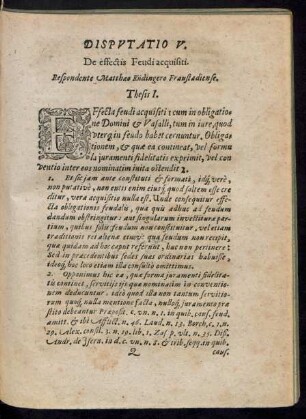 DISPVTATIO V.
De effectis Feudi acquisiti.
Respondente Matthæo Eidingero Fraustadiense.
Thesis I.
EFfecta feudi acquisiti 1 cum in obligatio
ne Domini & Vasalli, tum in iure, quod
uterq; in feudo habet cernuntur. Obliga
tionem, & quæ ea contineat, vel forma
la juramenti fidelitatis exprimit, vel con
ventio inter eos nominatim inita ostendit 2.
1. Rectè jam ante constituti & formati, idq́; verè
non putativè, nam extra enim eiusq́; quod saltem esse cre
ditur, vera acquisitio nulla est. Unde consequitur effe
cta obligationis feudalis, quæ quis adhuc ad feudum
dandum obstringitur: aut singularum investitura par
tium, quibus fides feudum non constituitur, vel etiam
traditionis rei aliena eiusq́; qua feudum non recipit,
qua quidam ad hoc caput referunt, huc non pertinere:
Sed in præcedentibus sedes suas ordinarias habuisse,
ideoq́; hoc loco etiam illa consultò omittimus.
2. Opponimus hic ea, quæ forma juramenti fideli-
tatis continet, servitijs eisque nominatim in conventio-
nem deducuntur. ideò quod illa non tantum servitio-
rum quoq́; nulla mentione facta, nulloq́; juramento præ
stito debeantur
in quib. caus. feud.
amitt. & ibi Afflict. n. 46. Laud. n. 35. Borch. c. 1. n.
29. Alex. consil. 1. n. 19. lib. 1. Zas. p.
Andr. de Isern. in d. c. un. n. 8. & trib. seqq. in quib.
Q
caus.